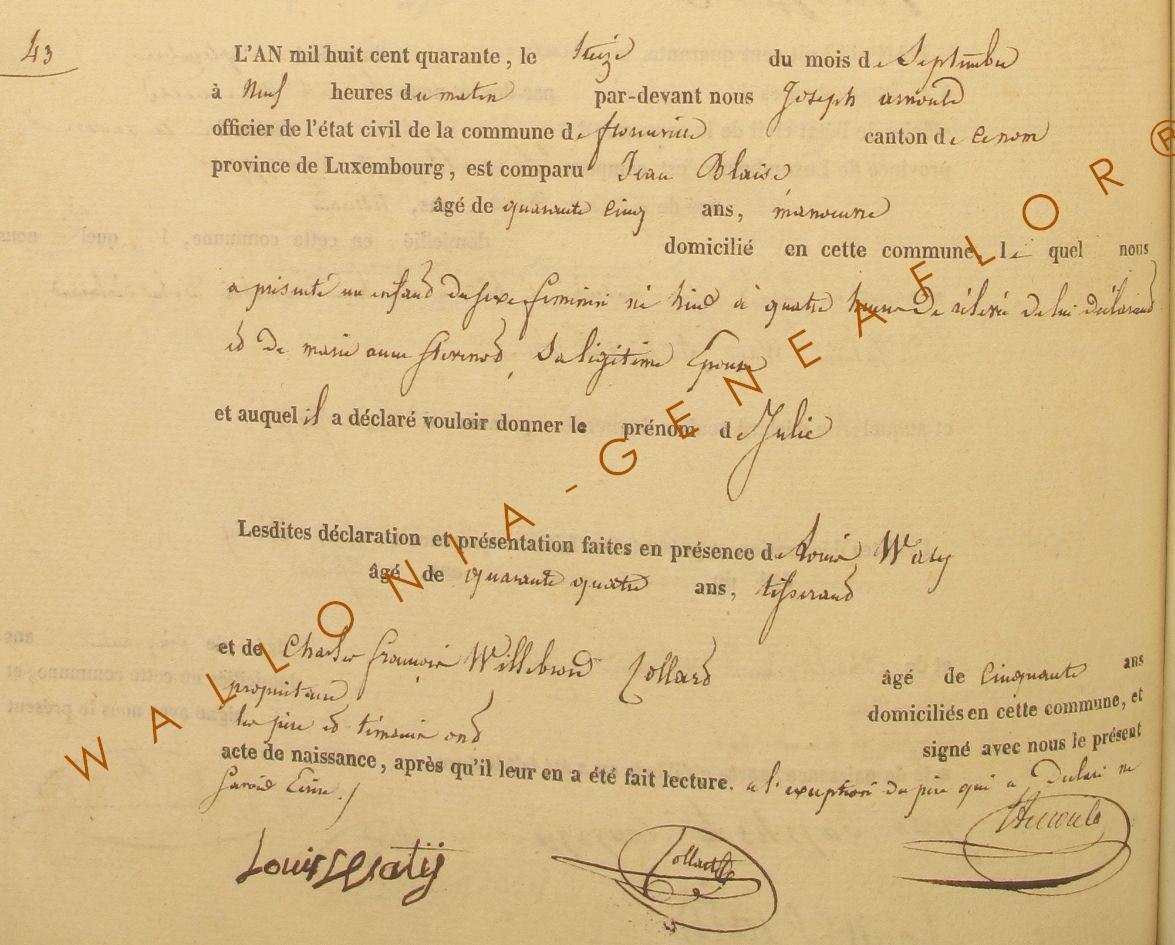 43
L'AN mil huit cent quarante, le treize du mois de Septembre
à Neuf heures du matin par-devant nous Joseph arnould
officier de l'état civil de la commune de florenville canton de
province de Luxembourg, est comparu Jean Blaise
âgé de quarante cinq ans, manoeuvre
domicilié en cette commune le quel nous
a présenté un enfant du sexe feminin né hier à quatre heures de relevée de lui déclarant
et de marie anne Sa légitime Epouse
et auquel il a déclaré vouloir donner le prénom de Julie
Lesdites déclaration et présentation faites en présence de Louis Waty
âgé de quarante quatre ans, tisserand
et de Charles françois Willebrord Collard âgé de Cinquante ans
propriétaire domiciliés en cette commune, et
les père et témoins ont signé avec nous le présent
acte de naissance, après qu'il leur en a été fait lecture. a l'exception du père qui a Déclaré ne
Savoir Ecrire ./
Louis Watÿ Collard Arnould
WALLONIA-GENEAFLOR®